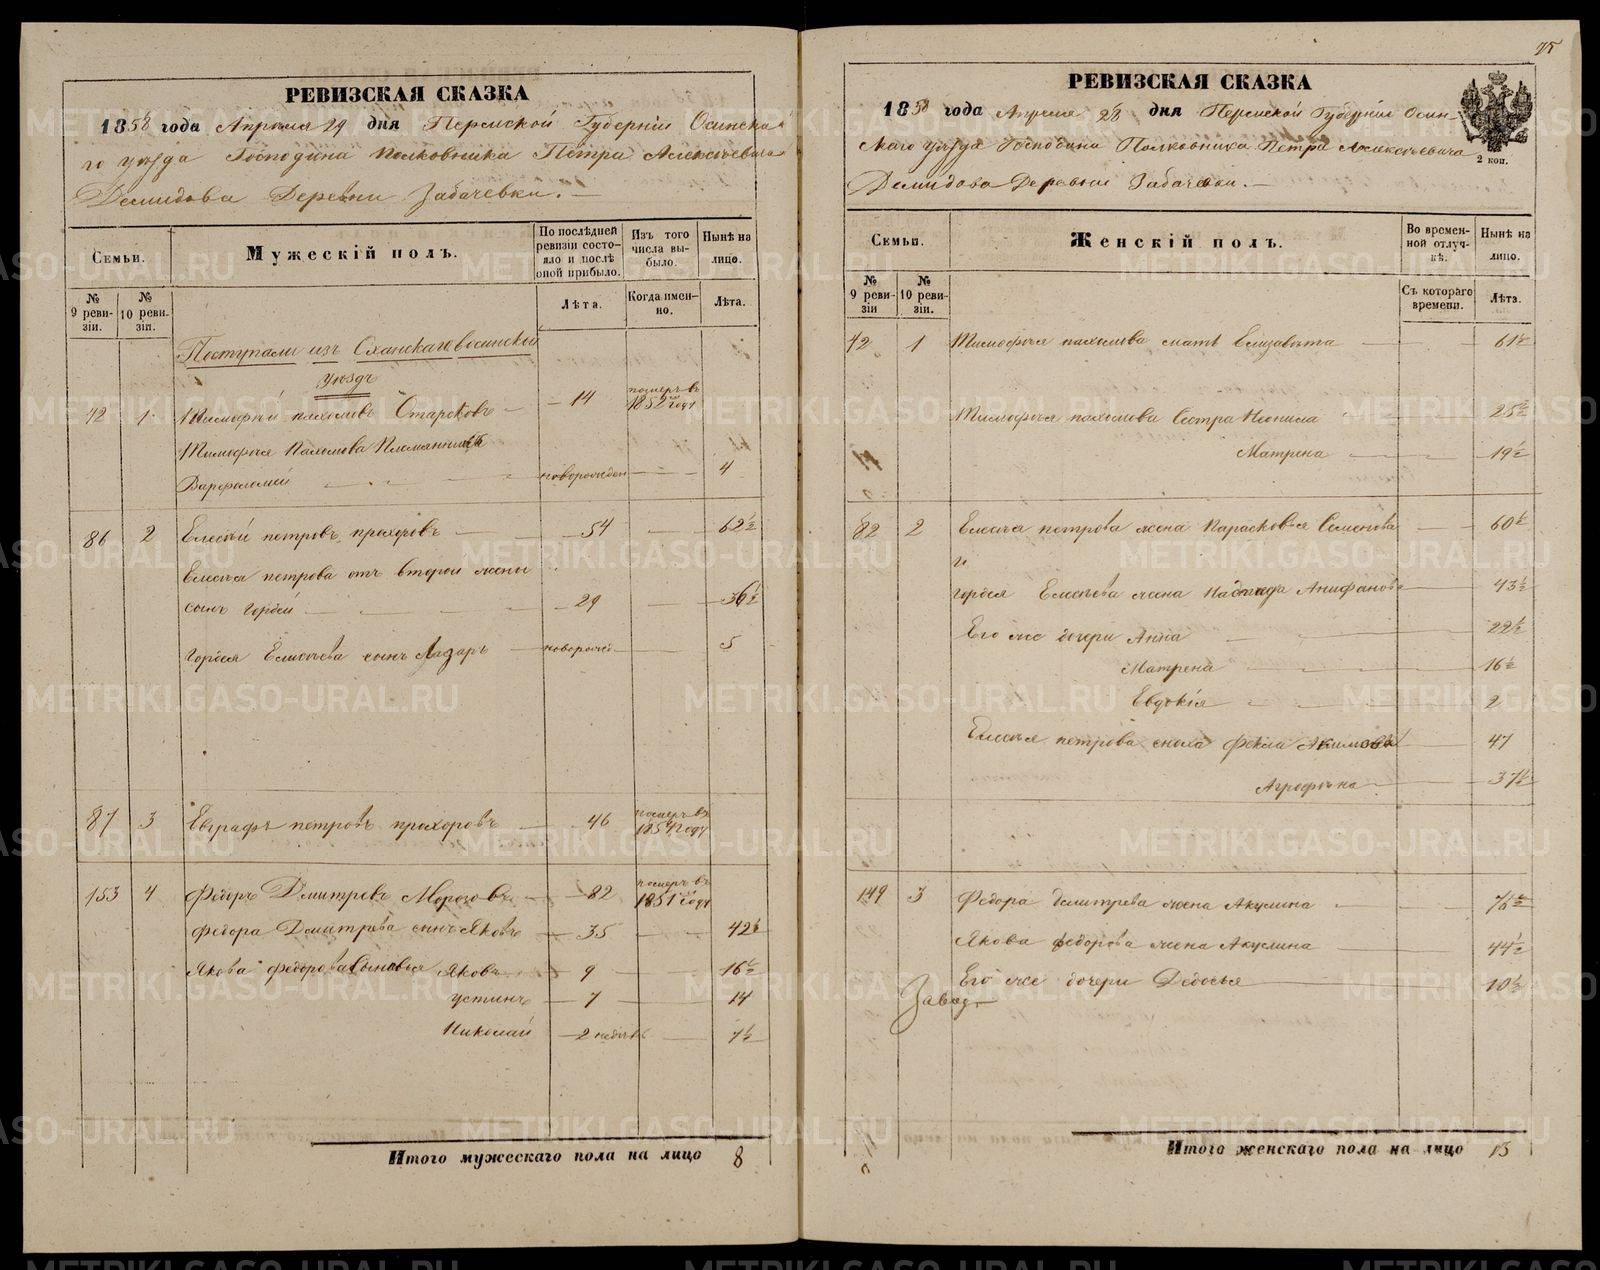 РЕВИЗСКАЯ СКАЗКА
1858 года Апреля 29 дня Пермской Губернии Осинска
го уезда Господина Полковника Петра Алексеевича
Демидова Деревни Забачевки.
Семьи.
Мужескій полъ.
По послѣдней ревизіи состояло и послѣ оной прибыло.
Изъ того числа выбыло.
Нынѣ на лицо.
№ 9 ревизіи.
№ 10 ревизіи.
Лѣта.
Когда именно.
Лѣта.
Поступали изъ Оханскаго в осинской
уѣздъ
42 1 Тимофѣй пахомовъ Старковъ 14 померъ въ 1852 году
Тимофѣя Пахомова Племянникъ
Варфоломей новорожден 4
86 2 Елесѣй петровъ прохоровъ 54 62½
Елесѣя петрова отъ второй жены
сынъ Гордѣй 29 36½
Гордѣя Елисѣева сынъ Лазарь новорожде 5
87 3 Евграфъ петровъ прохоровъ 46 померъ въ 1854 году
153 4 Федоръ Дмитревъ Морозовъ 82 померъ въ 1851 году
Федора Дмитрева сынъ Яковъ 35 42½
Якова федорова сыновья Яковъ 9 16½
устинъ 7 14
Николай 2 недѣль 7½
Итого мужескаго пола на лицо 8
75
РЕВИЗСКАЯ СКАЗКА
1858 года Апреля 28 дня Пермской Губерніи Осин-
скаго уезда Господина Полковника Петра Алексеевича
2 коп.
Демидова Деревни Забачевки.
Семьи.
Женскій полъ.
Во временной отлучкѣ.
Нынѣ на лицо.
№ 9 ревизіи
№ 10 ревизіи.
Съ котораго времени.
Лѣта.
42 1 Тимофѣя пахомова мать Елизавѣта 61½
Тимофѣя пахомова Сестра Неонила 25½
Матрена 19½
82 2 Елесѣя петрова жена Парасковья Семенова 60½
и
Гордѣя Елесѣева жена Надежда Анифанова 43½
Его же дочери Анна 22½
Матрена 16½
Евдокія 2
Елесѣя петрова сноха Фекла Акимова 47
Агрофѣна 37½
149 3 Федора дмитрева жена Акулина
Якова федорова жена Акулина 44½
Его же дочери Федосья 10½
Завод
Итого женскаго пола на лицо 13
METRIKI.GASO-URAL.RU